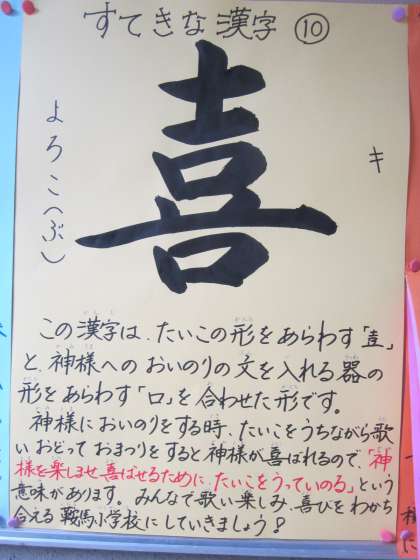 すてきな漢字 ⑩
喜
よろこ(ぶ)
キ
この漢字は、たいこの形をあらわす「壴」
と、神様へのおいのりの文を入れる器の
形をあらわす「口」を合わせた形です。
神様においのりをする時、たいこをうちながら歌
いおどっておまつりをすると神様が喜ばれるので、「神
様を楽しませ喜ばせるために、たいこをうっていのる」という
意味があります。みんなで歌い楽しみ、喜びをわかち
合える鞍馬小学校にしていきましょう!